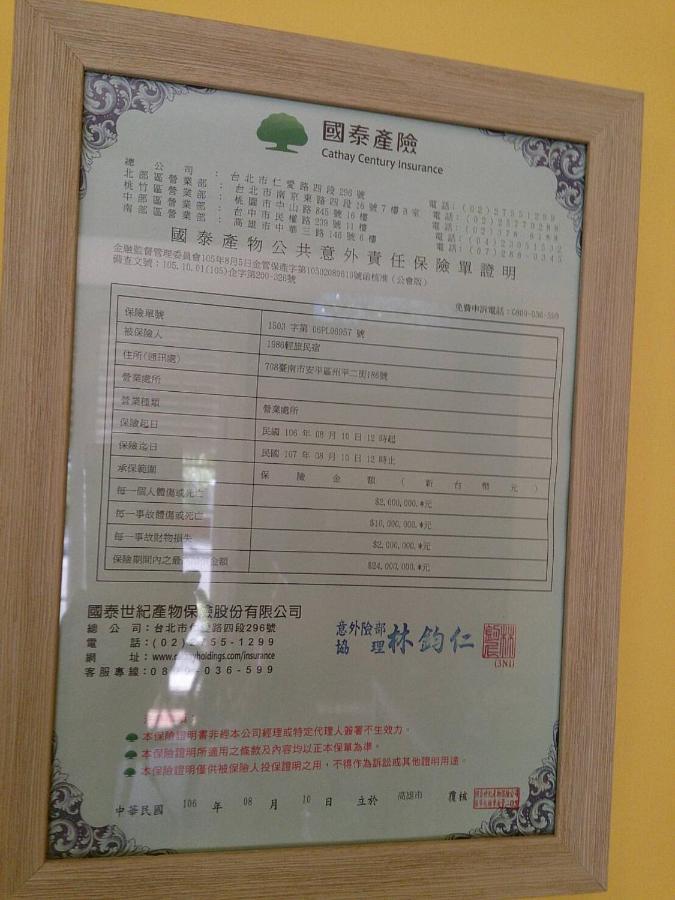 國泰產險
Cathay Century Insurance
總公司：台北市仁愛路四段296號 電話：(02)27551299
北部區營業部：台北市南京東路四段16號7樓B室 電話：(02)25779288
桃竹區營業部：桃園市中山路845號16樓 電話：
中部區營業部：台中市民權路239號11樓 電話：(04)23051532
南部區營業部：高雄市中華三路146號6樓 電話：(07)288-0345
國泰產物公共意外責任保險單證明
金融監督管理委員會105年8月5日金管保產字第10502080610號函核准（公會版）
備查文號：105.10.01(105)企字第200-326號
免費申訴電話：0800-036-599
保險單號 1503 字第 06PL06957 號
被保險人 1986輕旅民宿
住所(通訊處) 708臺南市安平區州平二街186號
營業處所
營業種類 營業處所
保險起日 民國 106 年 08 月 10 日 12 時起
保險迄日 民國 107 年 08 月 10 日 12 時止
承保範圍 保險金額（新台幣元）
每一個人體傷或死亡 $2,000,000.*元
每一事故體傷或死亡 $10,000,000.*元
每一事故財物損失 $2,000,000.*元
保險期間內之最 金額 $24,000,000.*元
國泰世紀產物保險股份有限公司
總公司：台北市仁愛路四段296號
電話：(02)2755-1299
網址：www.cathayholdings.com/insurance
客服專線：0800-036-599
意外險部
協理 林鈞仁
(3N1)
本保險證明書非經本公司經理或特定代理人簽署不生效力。
本保險證明所適用之條款及內容均以正本保單為準。
本保險證明僅供被保險人投保證明之用，不得作為訴訟或其他證明用途。
中華民國 106 年 08 月 10 日 立於 高雄市 覆核